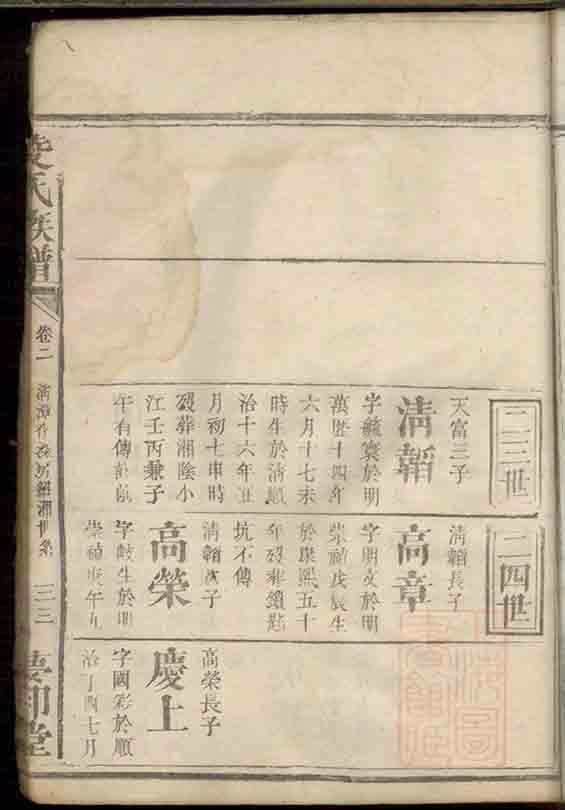 二三世
天富三子
淸韜
字毓寰於明
萬歷十四年
六月十七未
時生於淸順
治十六年丑
月初七申時
歿葬湘陰小
江壬丙兼子
午有傳
二四世
淸韜長子
高章
字明文於明
崇禎戊辰生
於康熙五十
年歿葬鎖匙
坑不傳
淸韜次子
高榮
字岐生於明
崇禎庚午九
高榮長子
慶上
字國彩於順
治丁酉七月
氏族譜
卷二
二三
堂